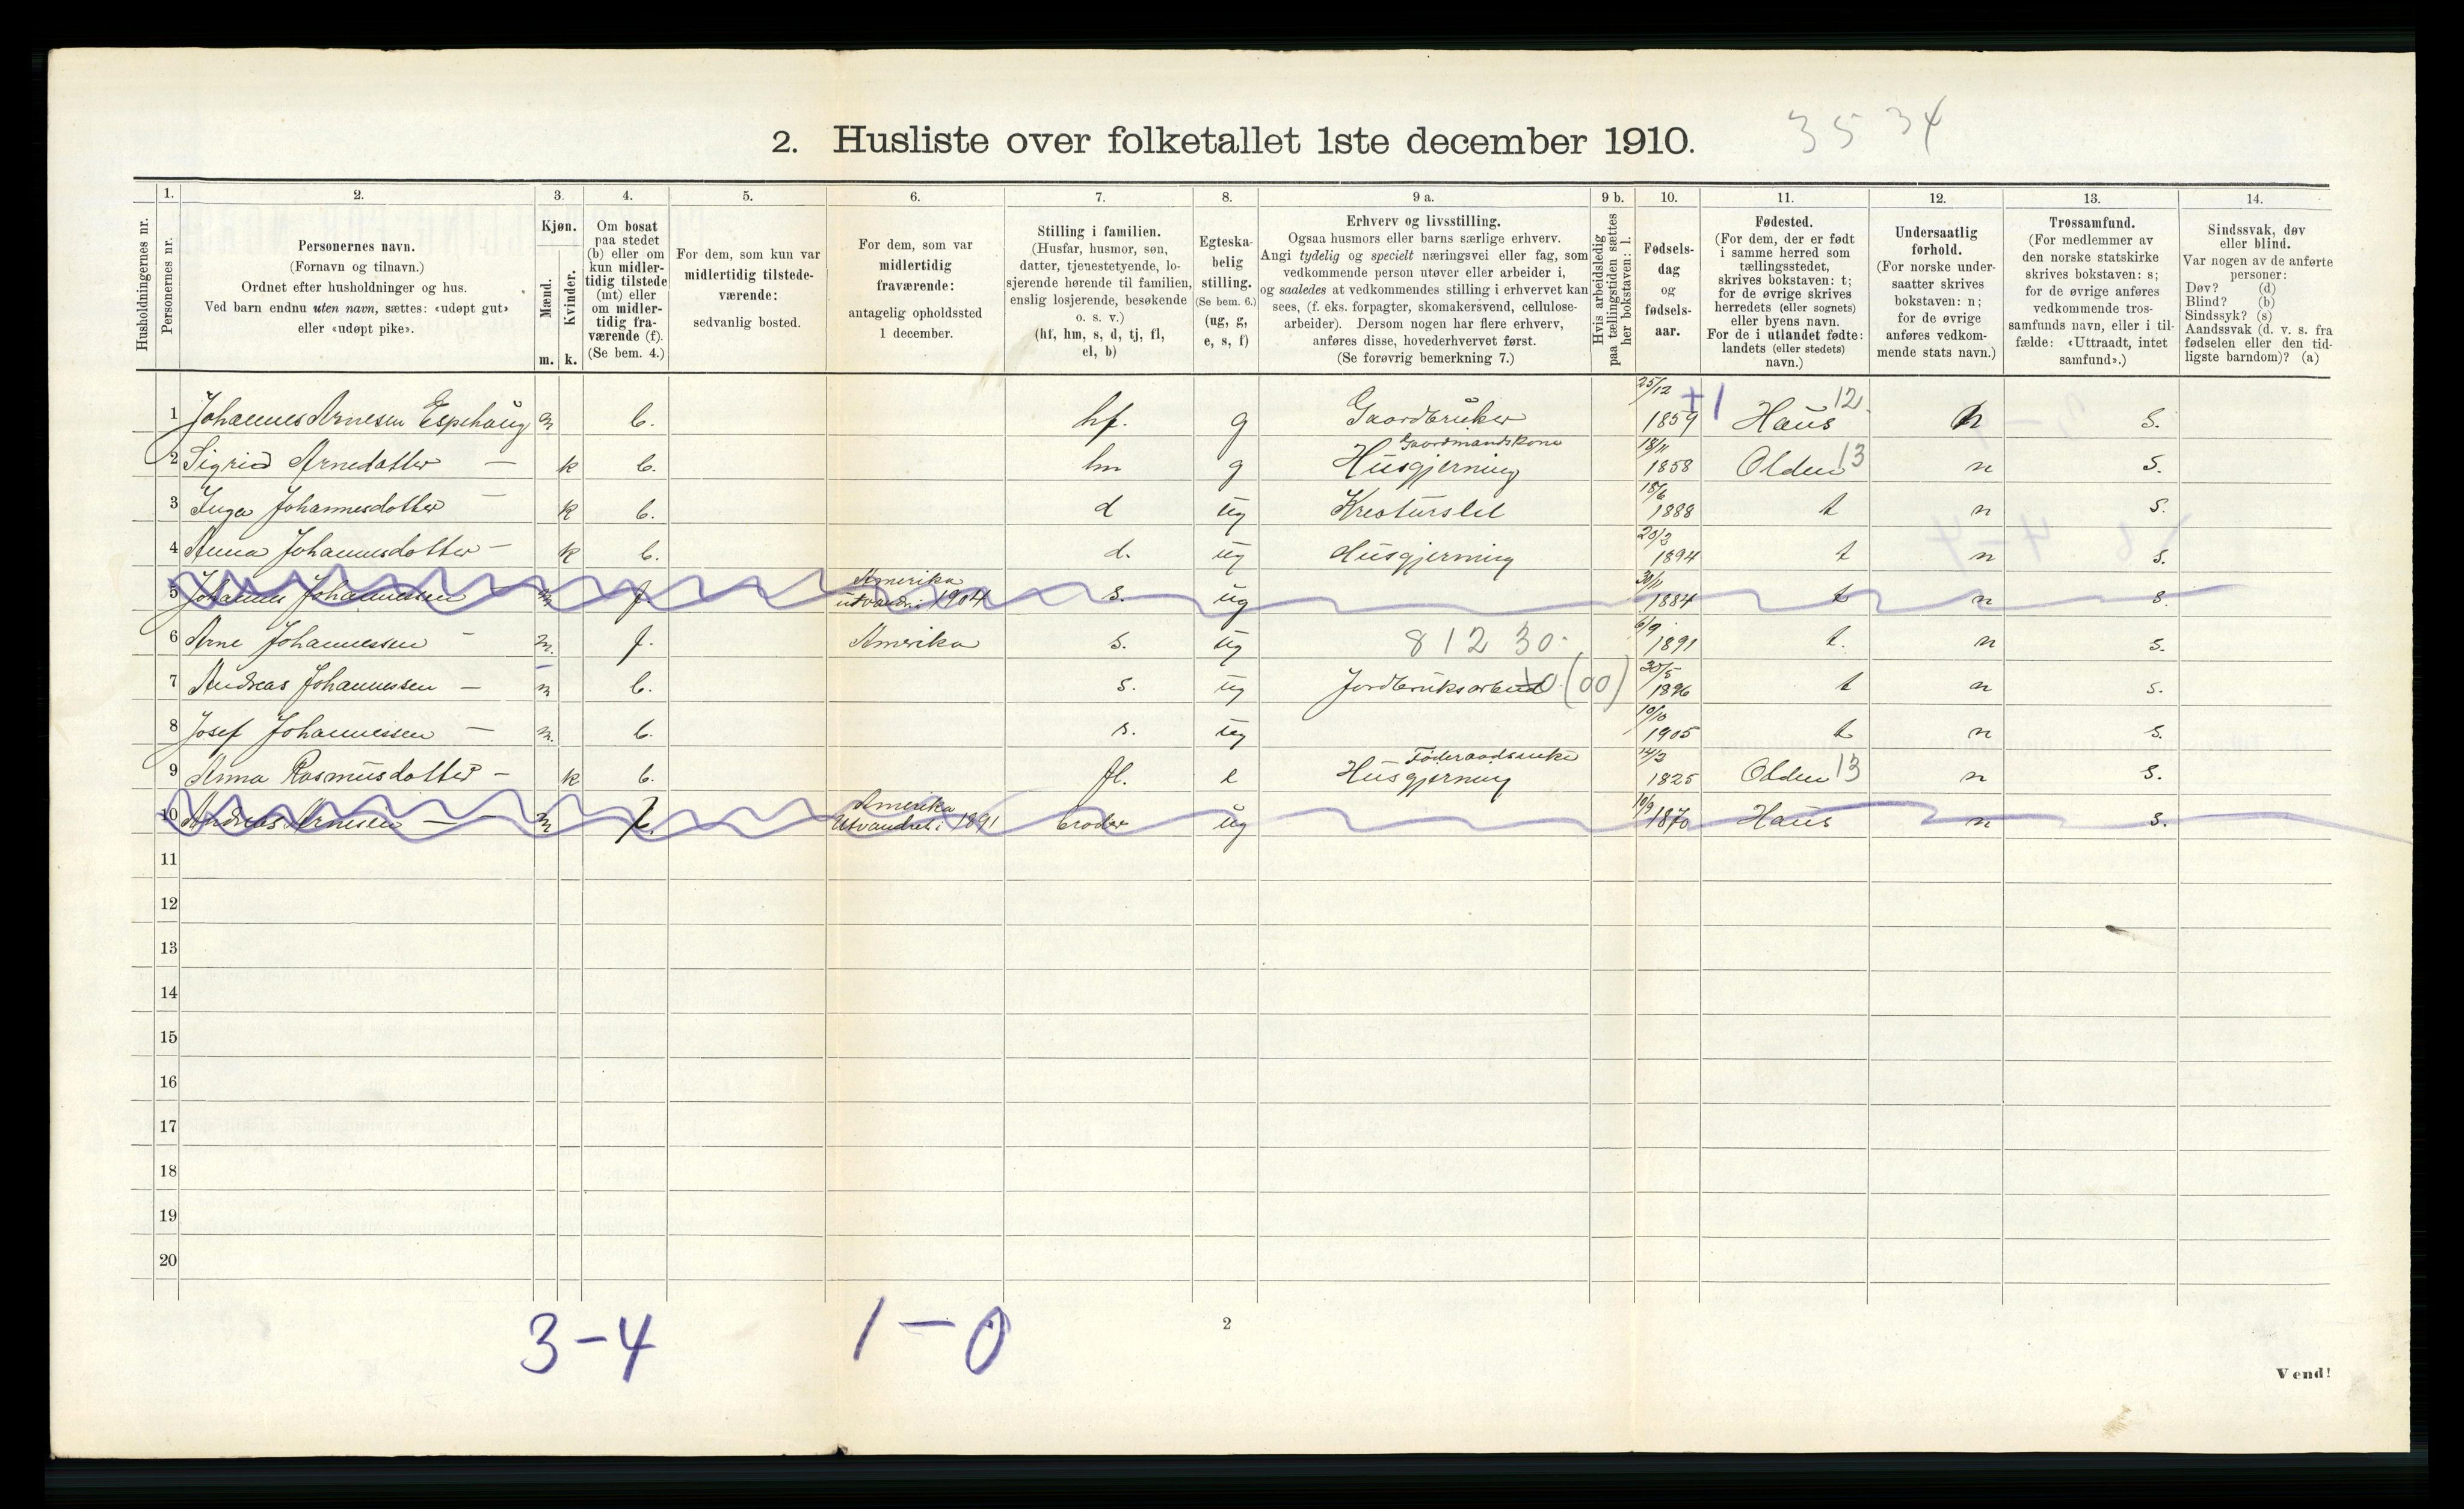 2. Husliste over folketallet 1ste december 1910.
3534
1. 2. 3. 4. 5. 6. 7. 8. 9 a. 9 b. 10. 11. 12. 13. 14.
Husholdningernes nr.
Personernes nr.
Personernes navn.
(Fornavn og tilnavn.)
Ordnet efter husholdninger og hus.
Ved barn endnu uten navn, sættes: «udøpt gut»
eller «udøpt pike».
Kjøn.
Mænd.
Kvinder.
m. k.
Om bosat
paa stedet
(b) eller om
kun midler-
tidig tilstede
(mt) eller
om midler-
tidig fra-
værende (f).
(Se bem. 4.)
For dem, som kun var
midlertidig tilstede-
værende:
sedvanlig bosted.
For dem, som var
midlertidig
fraværende:
antagelig opholdssted
1 december.
Stilling i familien.
(Husfar, husmor, søn,
datter, tjenestetyende, lo-
sjerende hørende til familien,
enslig losjerende, besøkende
o. s. v.)
(hf, hm, s, d, tj, fl,
el, b)
Egteska-
belig
stilling.
(Se bem. 6.)
(ug, g,
e, s, f)
Erhverv og livsstilling.
Ogsaa husmors eller barns særlige erhverv.
Angi tydelig og specielt næringsvei eller fag, som
vedkommende person utøver eller arbeider i,
og saaledes at vedkommendes stilling i erhvervet kan
sees, (f. eks. forpagter, skomakersvend, cellulose-
arbeider). Dersom nogen har flere erhverv,
anføres disse, hovederhvervet først.
(Se forøvrig bemerkning 7.)
Hvis arbeidsledig
paa tællingstiden sættes
her bokstaven: l.
Fødsels-
dag
og
fødsels-
aar.
Fødested.
(For dem, der er født
i samme herred som
tællingsstedet,
skrives bokstaven: t;
for de øvrige skrives
herredets (eller sognets)
eller byens navn.
For de i utlandet fødte:
landets (eller stedets)
navn.)
Undersaatlig
forhold.
(For norske under-
saatter skrives
bokstaven: n;
for de øvrige
anføres vedkom-
mende stats navn.)
Trossamfund.
(For medlemmer av
den norske statskirke
skrives bokstaven: s;
for de øvrige anføres
vedkommende tros-
samfunds navn, eller i til-
fælde: «Uttraadt, intet
samfund».)
Sindssvak, døv
eller blind.
Var nogen av de anførte
personer:
Døv? (d)
Blind? (b)
Sindssyk? (s)
Aandssvak (d. v. s. fra
fødselen eller den tid-
ligste barndom)? (a)
1 Johannes Arnesen Espehaug m b. hf. g Gaardbruker 25/12 1859 +1 Haus 12 n s.
2 Sigrid Arnedatter — k b. hm g Husgjerning Gaardmandskone 18/11 1858 Olden 13 n s.
3 Inga Johannesdotter — k b. d ug Kreaturstel 18/6 1888 t n s.
4 Anna Johannesdotter — k b. d. ug Husgjerning 20/3 1894 t n s.
5 Johannes Johannessen m f. Amerika utvandr. 1904 s. ug 30/11 1884 t n s.
6 Arne Johannessen — m. f. Amerika s. ug 8 12 30. 6/9 1891 t. n s.
7 Andreas Johannessen — m b. s. ug Jordbruksarbeid (00) 30/5 1896 t n s.
8 Josef Johannessen — m. b. s. ug 10/10 1905 t n s.
9 Anna Rasmusdotter — k b. fl. e Husgjerning Føderaadsenke 14/3 1825 Olden 13 n s.
10 Andreas Arnesen — m f. Amerika Utvandret i 1891 broder ug 10/9 1870 Haus n s.
11
12
13
14
15
16
17
18
19
20
3-4 1-0
2
Vend!